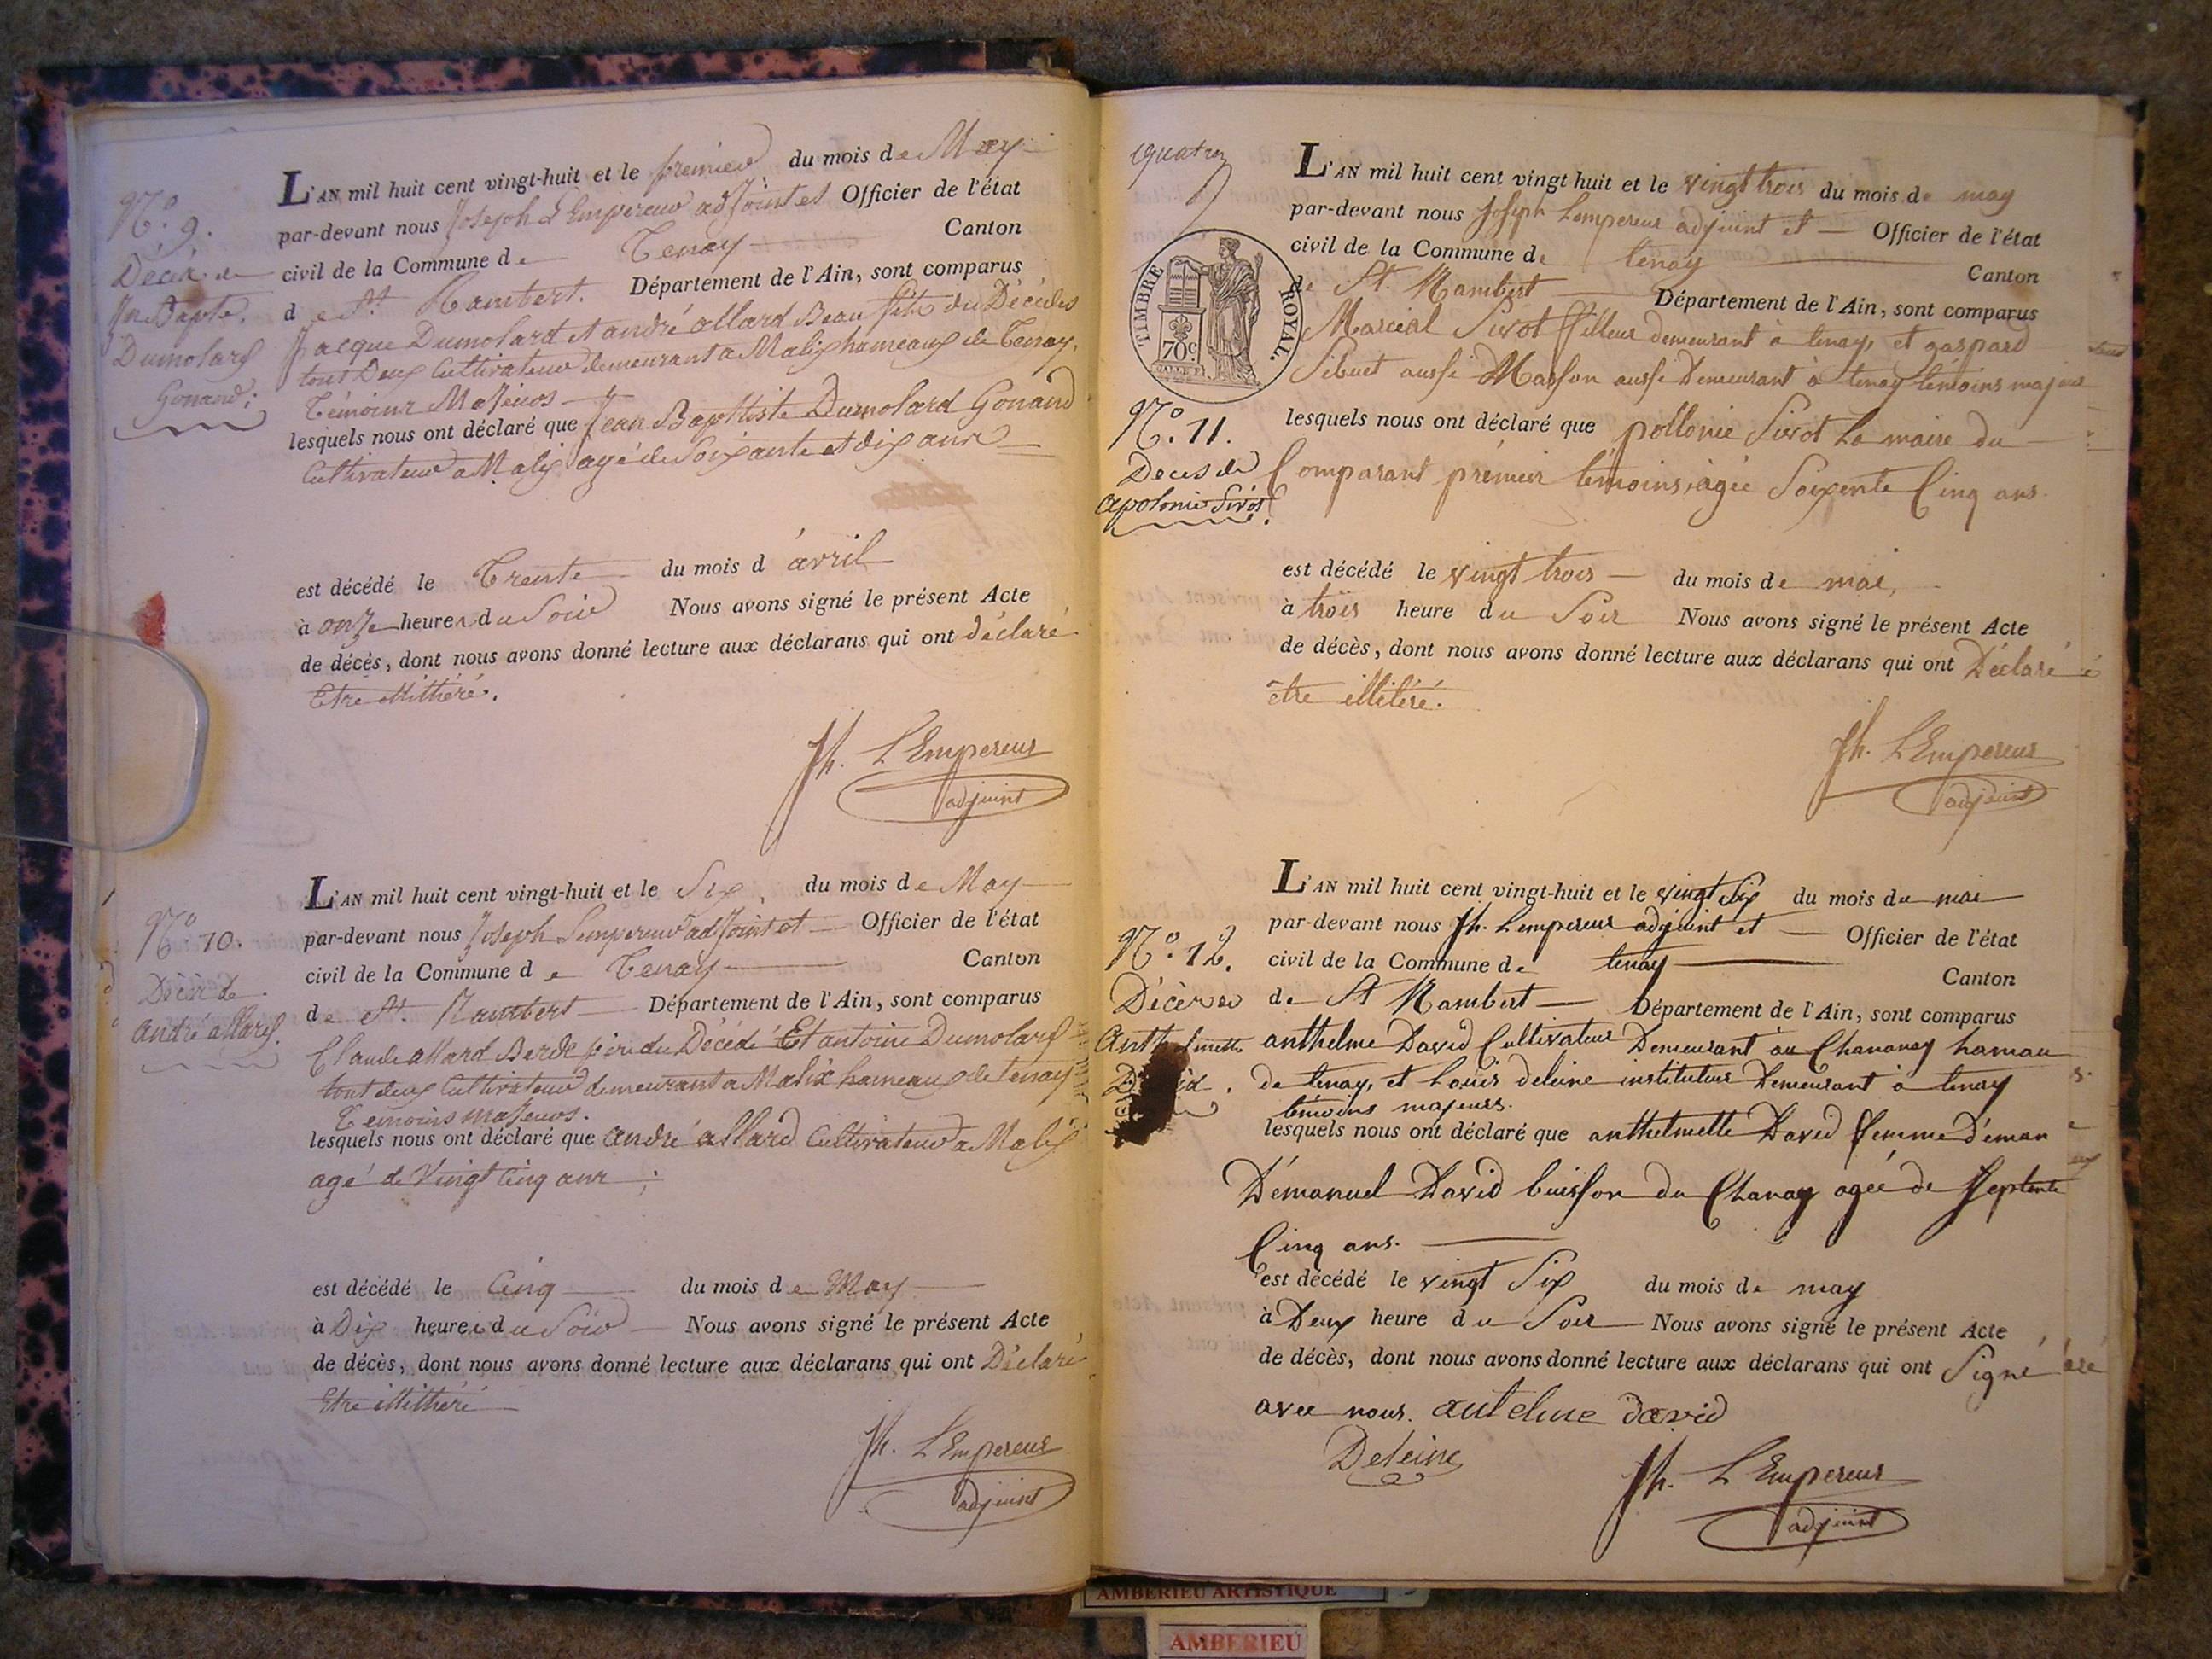 N.o 9.
Décès de
Jn Bapte.
Dumolard
Gonand;
L'AN mil huit cent vingt-huit et le premier du mois de May
par-devant nous Joseph L'Empereur adjoint et Officier de l'état
civil de la Commune de Tenay Canton
de St. Rambert. Département de l'Ain, sont comparus
Jacque Dumolard et andré allard Beau fils du Décédes
tout Deux Cultivateur demeurant a Malix hameaux de Tenay,
Témoins Majeurs
lesquels nous ont déclaré que Jean Baptiste Dumolard Gonand
Cultivateur a Malix agé de Soixante et dix ans
est décédé le Trente du mois d'avril
à onze heures du Soir Nous avons signé le présent Acte
de décès, dont nous avons donné lecture aux déclarans qui ont déclaré
Etre illithéré.
Jh. L'Empereur
adjoint
N.o 10.
Décès de
andré allard.
L'AN mil huit cent vingt-huit et le Six, du mois de May
par-devant nous Joseph Lempereur adjoint et Officier de l'état
civil de la Commune de Tenay Canton
de St. Rambert Département de l'Ain, sont comparus
Claude allard Berde père du Décédé Et antoine Dumolard
tout deux Cultivateur demeurant a Malix hameaux de tenay
Temoins majeurs.
lesquels nous ont déclaré que andré allard Cultivateur a Malix
agé de Vingt Cinq ans ;
est décédé le Cinq du mois de May
à Dix heures du Soir Nous avons signé le présent Acte
de décès, dont nous avons donné lecture aux déclarans qui ont Déclaré
Etre illithéré
Jh. L'Empereur
adjoint
TIMBRE ROYAL.
70c
N.o 11.
Deces de
apolonie Sivot.
L'AN mil huit cent vingt huit et le vingt trois du mois de may
par-devant nous Joseph Lempereur adjoint et Officier de l'état
civil de la Commune de tenay Canton
de St. Rambert Département de l'Ain, sont comparus
Marcial Sivot filleur demeurant à tenay, et gaspard
Sibuet aussi Masson aussi Demeurant à tenay témoins majeur
lesquels nous ont déclaré que pollonie Sivot La maire du
Comparant prémier témoins, agée Soixente Cinq ans.
est décédé le vingt trois du mois de mai,
à trois heure du Soir Nous avons signé le présent Acte
de décès, dont nous avons donné lecture aux déclarans qui ont Déclaré
être illitéré.
Jh. L'Empereur
adjoint
N.o 12.
Décès de
Anthelmette
David.
L'AN mil huit cent vingt-huit et le vingt Six du mois du mai
par-devant nous Jh. Lempereur adjoint et Officier de l'état
civil de la Commune de tenay Canton
de St Rambert Département de l'Ain, sont comparus
anthelme David Cultivateur Demeurant au Chananay hamau
de tenay, et Louis deleine instituteur Demeurant à tenay
témoins majeurs.
lesquels nous ont déclaré que anthelmette David femme d'eman
D'émanuel David buisson du Chanay agée de Septente
Cinq ans.
est décédé le vingt Six du mois de may
à Deux heure du Soir Nous avons signé le présent Acte
de décès, dont nous avons donné lecture aux déclarans qui ont Signé
avec nous. antelme david
Deleine
Jh. L'Empereur
adjoint
AMBERIEU ARTISTIQUE
AMBERIEU